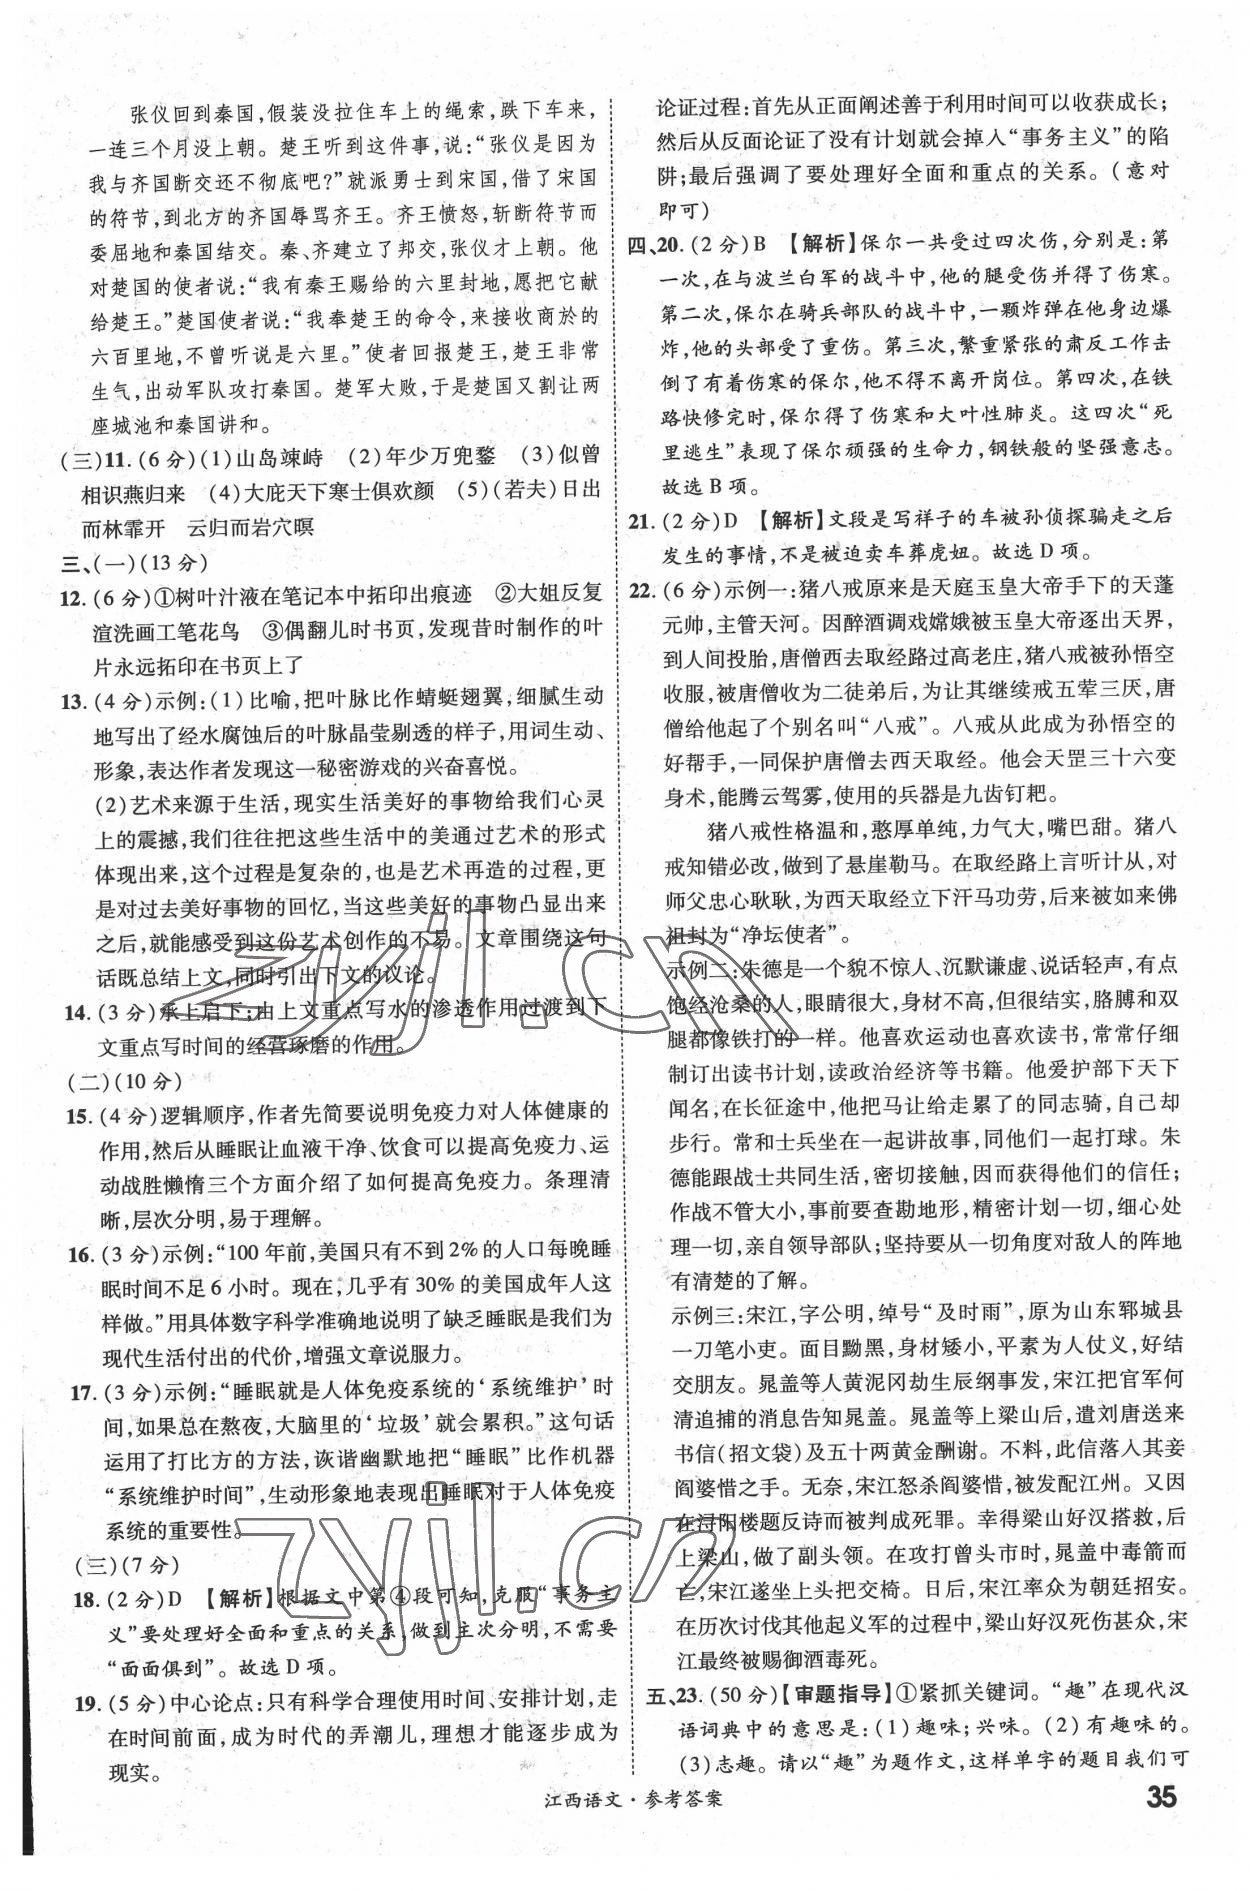 张仪回到秦国,假装没拉住车上的绳索,跌下车来,
一连三个月没上朝。楚王听到这件事,说:“张仪是因为
我与齐国断交还不彻底吧?”就派勇士到宋国,借了宋国
的符节,到北方的齐国辱骂齐王。齐王愤怒,斩断符节而
委屈地和秦国结交。秦、齐建立了邦交,张仪才上朝。他
对楚国的使者说:“我有秦王赐给的六里封地,愿把它献
给楚王。”楚国使者说:“我奉楚王的命令,来接收商於的
六百里地,不曾听说是六里。”使者回报楚王,楚王非常
生气,出动军队攻打秦国。楚军大败,于是楚国又割让两
座城池和秦国讲和。
(三)11.(6分)(1)山岛竦峙　(2)年少万兜鍪　(3)似曾
相识燕归来　(4)大庇天下寒士俱欢颜　(5)(若夫)日出
而林霏开　云归而岩穴暝
三、(一)(13分)
12.(6分)①树叶汁液在笔记本中拓印出痕迹　②大姐反复
渲洗画工笔花鸟　③偶翻儿时书页,发现昔时制作的叶
片永远拓印在书页上了
13.(4分)示例:(1)比喻,把叶脉比作蜻蜓翅翼,细腻生动
地写出了经水腐蚀后的叶脉晶莹剔透的样子,用词生动、
形象,表达作者发现这一秘密游戏的兴奋喜悦。
(2)艺术来源于生活,现实生活美好的事物给我们心灵
上的震撼,我们往往把这些生活中的美通过艺术的形式
体现出来,这个过程是复杂的,也是艺术再造的过程,更
是对过去美好事物的回忆,当这些美好的事物凸显出来
之后,就能感受到这份艺术创作的不易。文章围绕这句
话既总结上文,同时引出下文的议论。
14.(3分)承上启下;由上文重点写水的渗透作用过渡到下
文重点写时间的经营琢磨的作用。
(二)(10分)
15.(4分)逻辑顺序,作者先简要说明免疫力对人体健康的
作用,然后从睡眠让血液干净、饮食可以提高免疫力、运
动战胜懒惰三个方面介绍了如何提高免疫力。条理清
晰,层次分明,易于理解。
16.(3分)示例:“100年前,美国只有不到2%的人口每晚睡
眠时间不足6小时。现在,几乎有30%的美国成年人这
样做。”用具体数字科学准确地说明了缺乏睡眠是我们为
现代生活付出的代价,增强文章说服力。
17.(3分)示例:“睡眠就是人体免疫系统的‘系统维护’时
间,如果总在熬夜,大脑里的‘垃圾’就会累积。”这句话
运用了打比方的方法,诙谐幽默地把“睡眠”比作机器
“系统维护时间”,生动形象地表现出睡眠对于人体免疫
系统的重要性。
(三)(7分)
18.(2分)D　【解析】根据文中第④段可知,克服“事务主
义”要处理好全面和重点的关系,做到主次分明,不需要
“面面俱到”。故选D项。
19.(5分)中心论点:只有科学合理使用时间、安排计划,走
在时间前面,成为时代的弄潮儿,理想才能逐步成为
现实。
论证过程:首先从正面阐述善于利用时间可以收获成长;
然后从反面论证了没有计划就会掉入“事务主义”的陷
阱;最后强调了要处理好全面和重点的关系。(意对
即可)
四、20.(2分)B　【解析】保尔一共受过四次伤,分别是:第
一次,在与波兰白军的战斗中,他的腿受伤并得了伤寒。
第二次,保尔在骑兵部队的战斗中,一颗炸弹在他身边爆
炸,他的头部受了重伤。第三次,繁重紧张的肃反工作击
倒了有着伤寒的保尔,他不得不离开岗位。第四次,在铁
路快修完时,保尔得了伤寒和大叶性肺炎。这四次“死
里逃生”表现了保尔顽强的生命力,钢铁般的坚强意志。
故选B项。
21.(2分)D　【解析】文段是写祥子的车被孙侦探骗走之后
发生的事情,不是被迫卖车葬虎妞。故选D项。
22.(6分)示例一:猪八戒原来是天庭玉皇大帝手下的天蓬
元帅,主管天河。因醉酒调戏嫦娥被玉皇大帝逐出天界,
到人间投胎,唐僧西去取经路过高老庄,猪八戒被孙悟空
收服,被唐僧收为二徒弟后,为让其继续戒五荤三厌,唐
僧给他起了个别名叫“八戒”。八戒从此成为孙悟空的
好帮手,一同保护唐僧去西天取经。他会天罡三十六变
身术,能腾云驾雾,使用的兵器是九齿钉耙。
猪八戒性格温和,憨厚单纯,力气大,嘴巴甜。猪八
戒知错必改,做到了悬崖勒马。在取经路上言听计从,对
师父忠心耿耿,为西天取经立下汗马功劳,后来被如来佛
祖封为“净坛使者”。
示例二:朱德是一个貌不惊人、沉默谦虚、说话轻声,有点
饱经沧桑的人,眼睛很大,身材不高,但很结实,胳膊和双
腿都像铁打的一样。他喜欢运动也喜欢读书,常常仔细
制订出读书计划,读政治经济等书籍。他爱护部下天下
闻名,在长征途中,他把马让给走累了的同志骑,自己却
步行。常和士兵坐在一起讲故事,同他们一起打球。朱
德能跟战士共同生活,密切接触,因而获得他们的信任;
作战不管大小,事前要查勘地形,精密计划一切,细心处
理一切,亲自领导部队;坚持要从一切角度对敌人的阵地
有清楚的了解。
示例三:宋江,字公明,绰号“及时雨”,原为山东郓城县
一刀笔小吏。面目黝黑,身材矮小,平素为人仗义,好结
交朋友。晁盖等人黄泥冈劫生辰纲事发,宋江把官军何
清追捕的消息告知晁盖。晁盖等上梁山后,遣刘唐送来
书信(招文袋)及五十两黄金酬谢。不料,此信落入其妾
阎婆惜之手。无奈,宋江怒杀阎婆惜,被发配江州。又因
在浔阳楼题反诗而被判成死罪。幸得梁山好汉搭救,后
上梁山,做了副头领。在攻打曾头市时,晁盖中毒箭而
亡,宋江遂坐上头把交椅。日后,宋江率众为朝廷招安。
在历次讨伐其他起义军的过程中,梁山好汉死伤甚众,宋
江最终被赐御酒毒死。
五、23.(50分)【审题指导】①紧抓关键词。“趣”在现代汉
语词典中的意思是:(1)趣味;兴味。(2)有趣味的。
(3)志趣。请以“趣”为题作文,这样单字的题目我们可
江西语文·参考答案
35
zyjl.cn
zyjl.cn